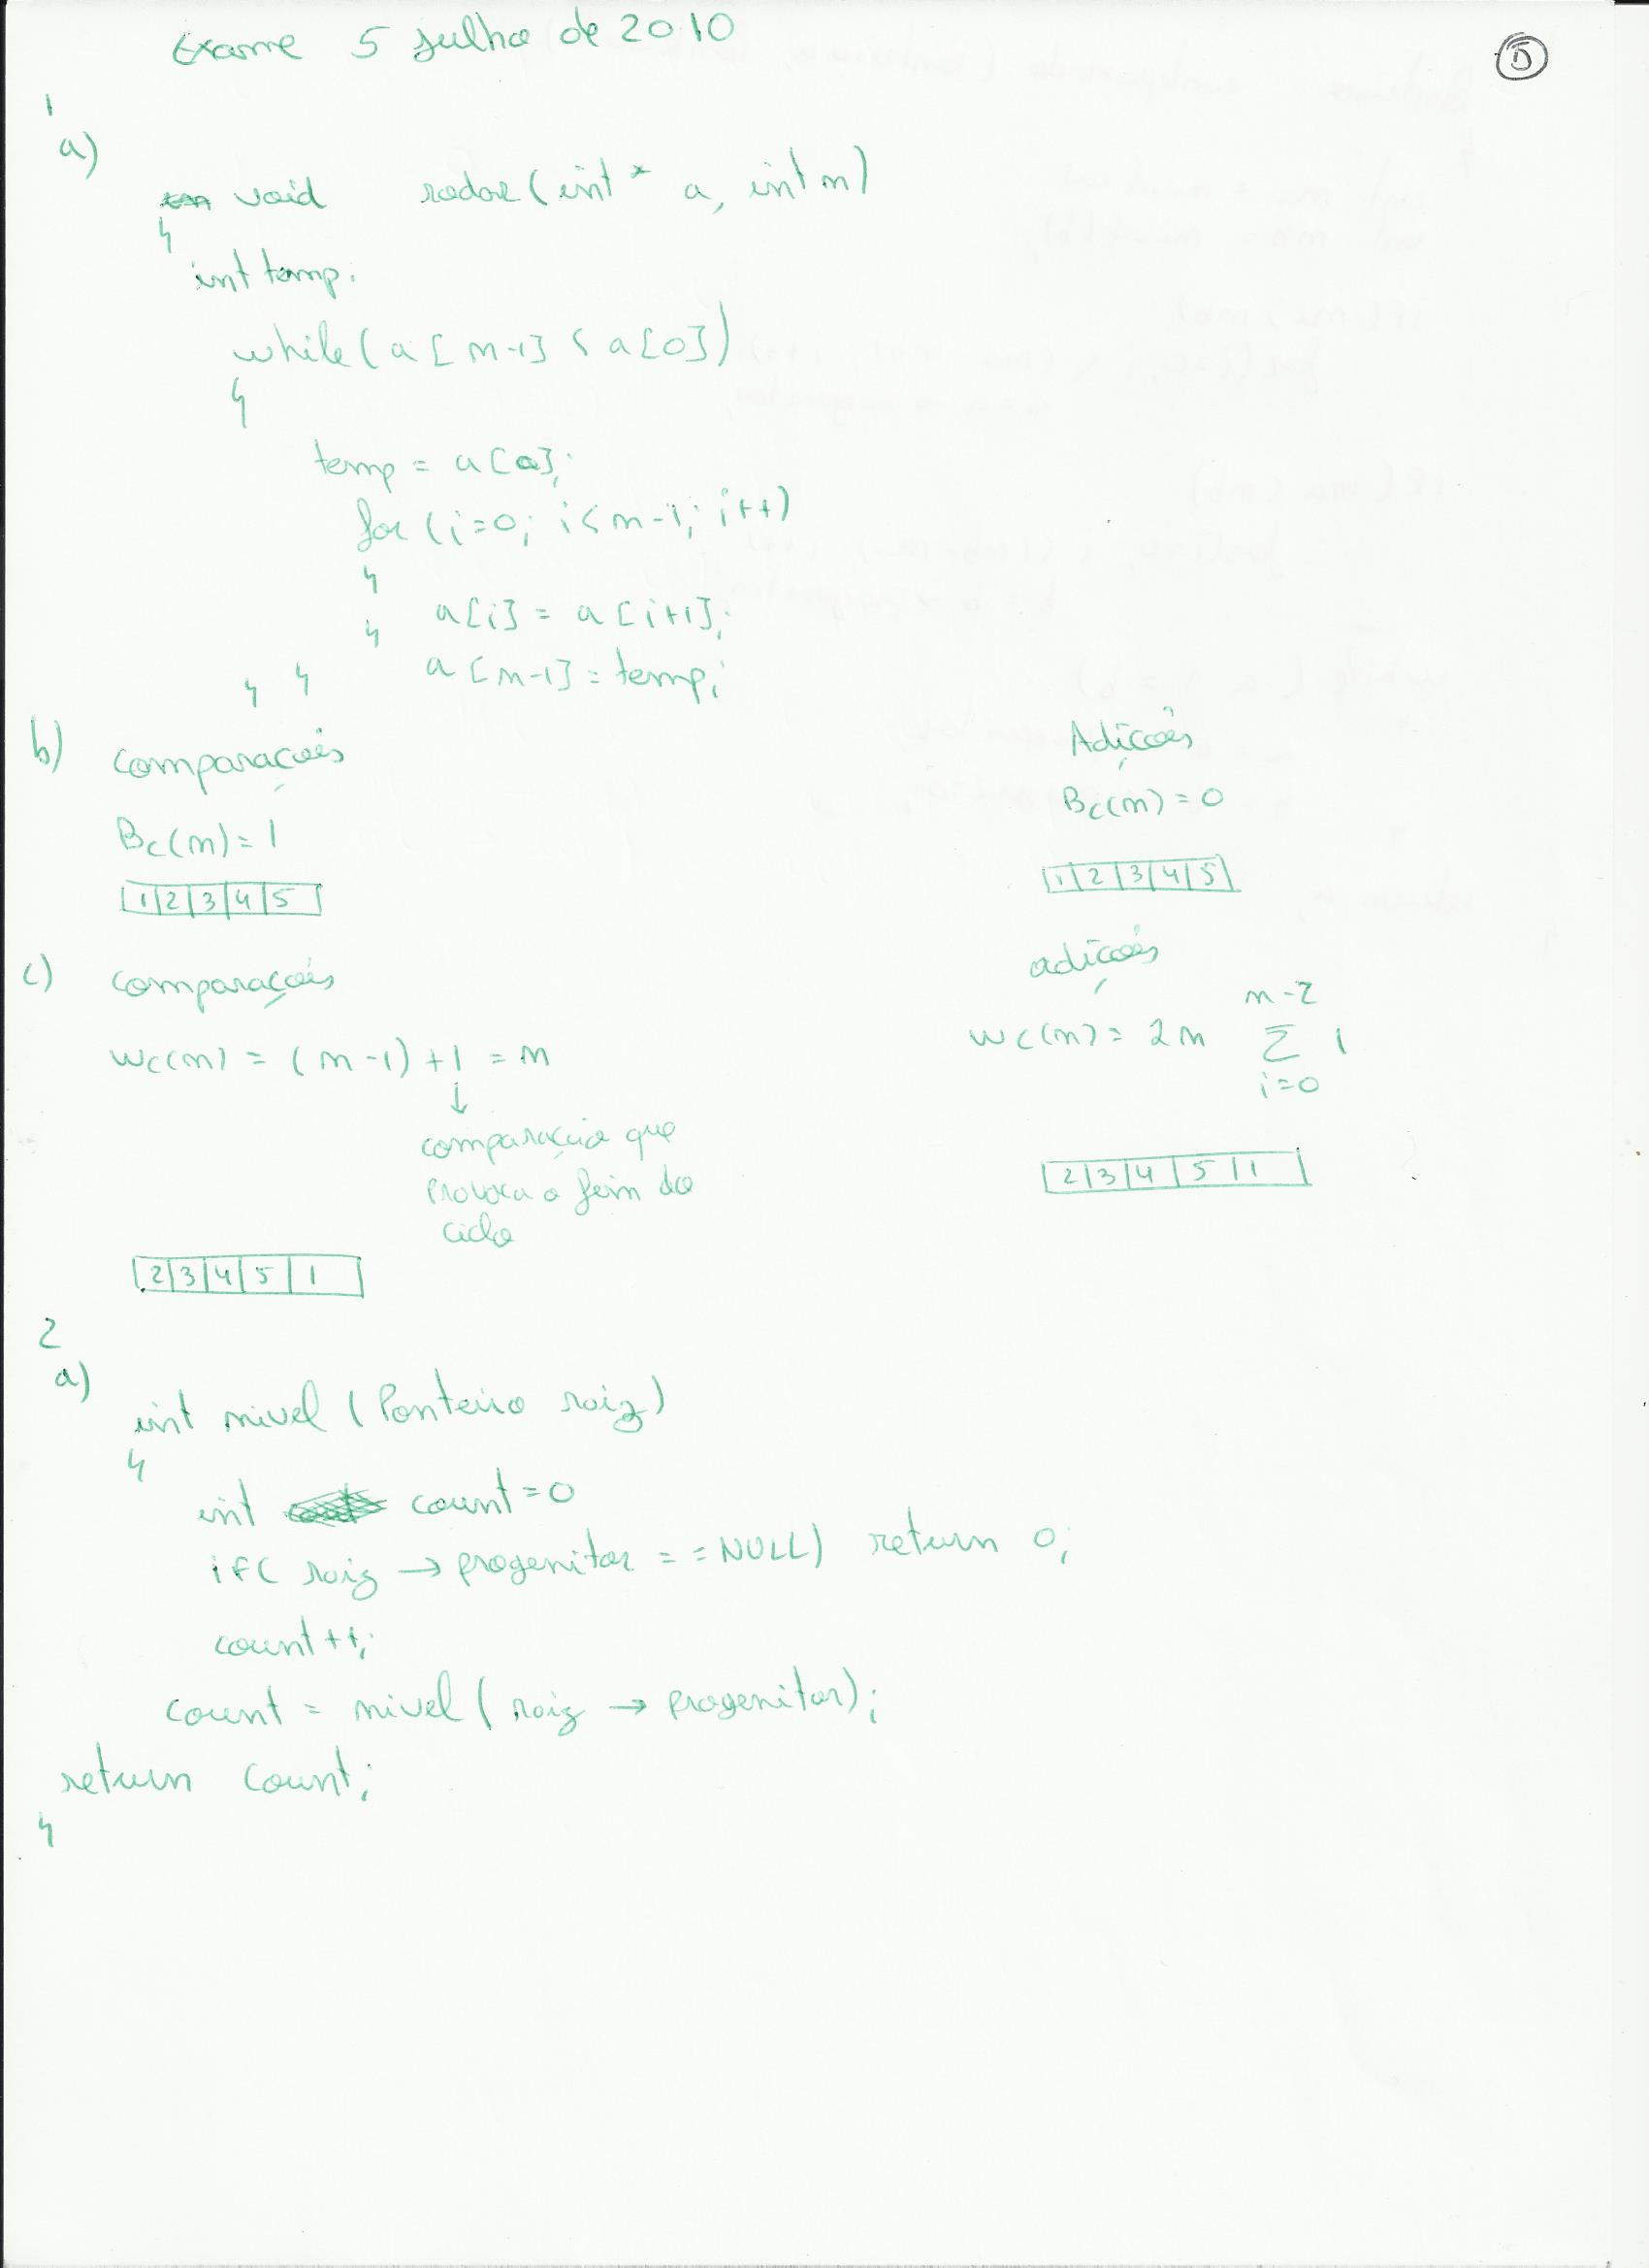 Exame 5 julho de 2010
5
1
a)
void rodar (int * a, int n)
{
int temp.
while (a [n-1] < a[0])
{
temp = a[0];
for (i=0; i<n-1; i++)
{
a[i] = a[i+1];
}
a[n-1] = temp;
} }
b) comparações
Bc(n) = 1
1 2 3 4 5
Adições
Bc(n) = 0
1 2 3 4 5
c) comparações
Wc(n) = (n-1) + 1 = n
↓
comparação que
provoca o fim do
ciclo
2 3 4 5 1
adições
Wc(n) = 2n
n-2
Σ 1
i=0
2 3 4 5 1
2
a)
int nivel (Ponteiro raiz)
{
int count=0
if( raiz → progenitor == NULL) return 0;
count++;
count = nivel ( raiz → progenitor);
return count;
}